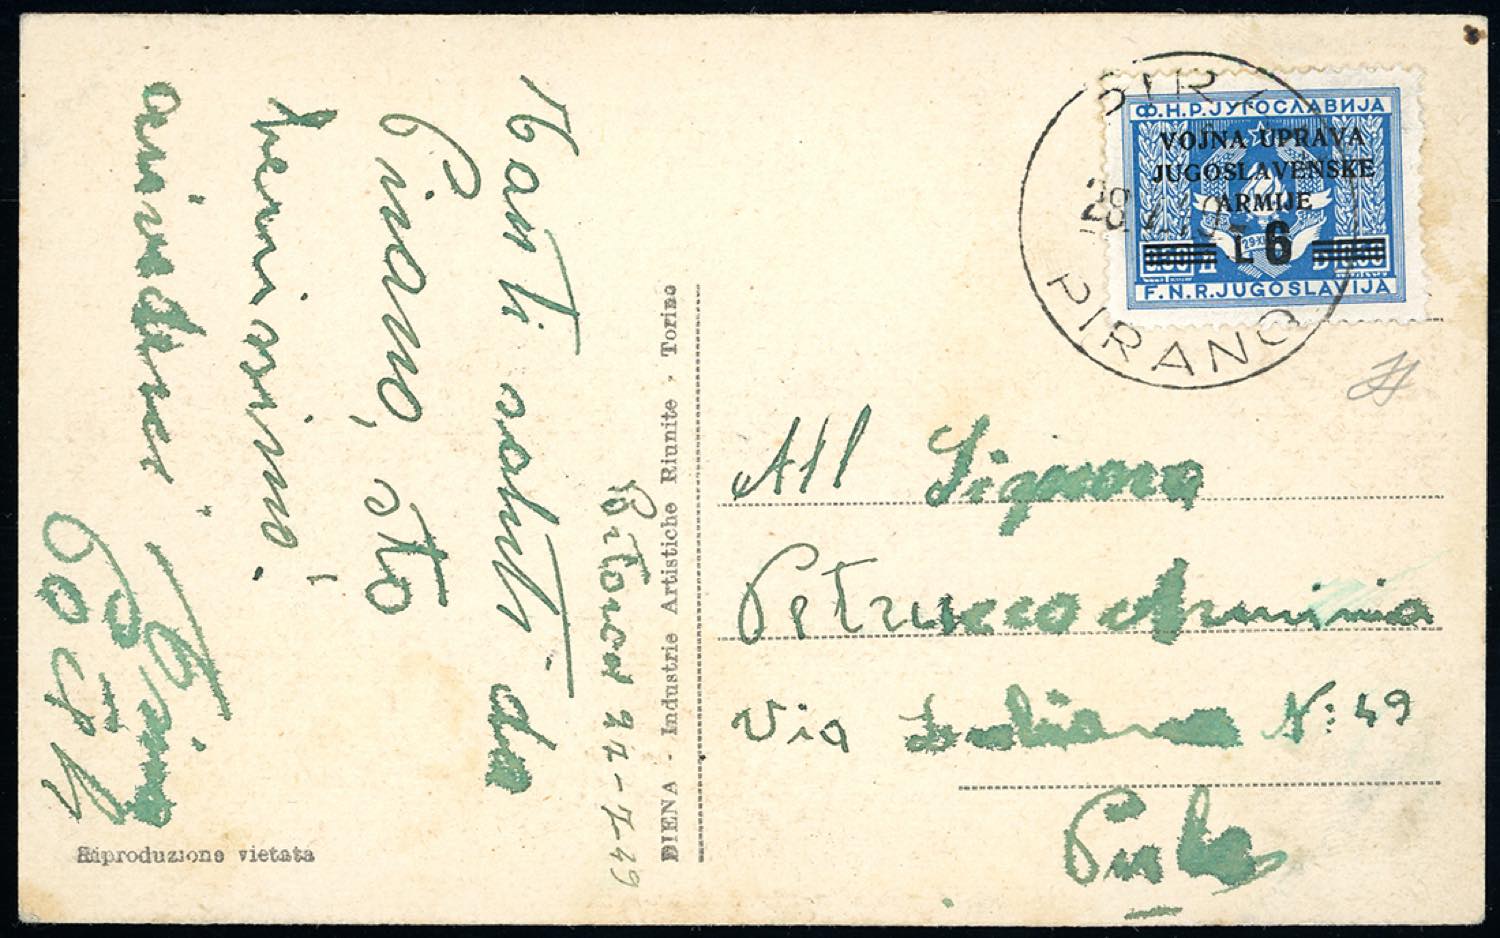 Tanti saluti da
Pirano, sto
benissimo!
arivederci
Pirano 27-7-49
DIENA - Industrie Artistiche Riunite - Torino
Riproduzione vietata
Ф.Н.Р.ЈУГОСЛАВИЈА
VOJNA UPRAVA
JUGOSLAVENSKE
ARMIJE
L 6
F.N.R.JUGOSLAVIJA
PIRANO
All Signora
Petrucco Arminia
Via N: 49
Pola